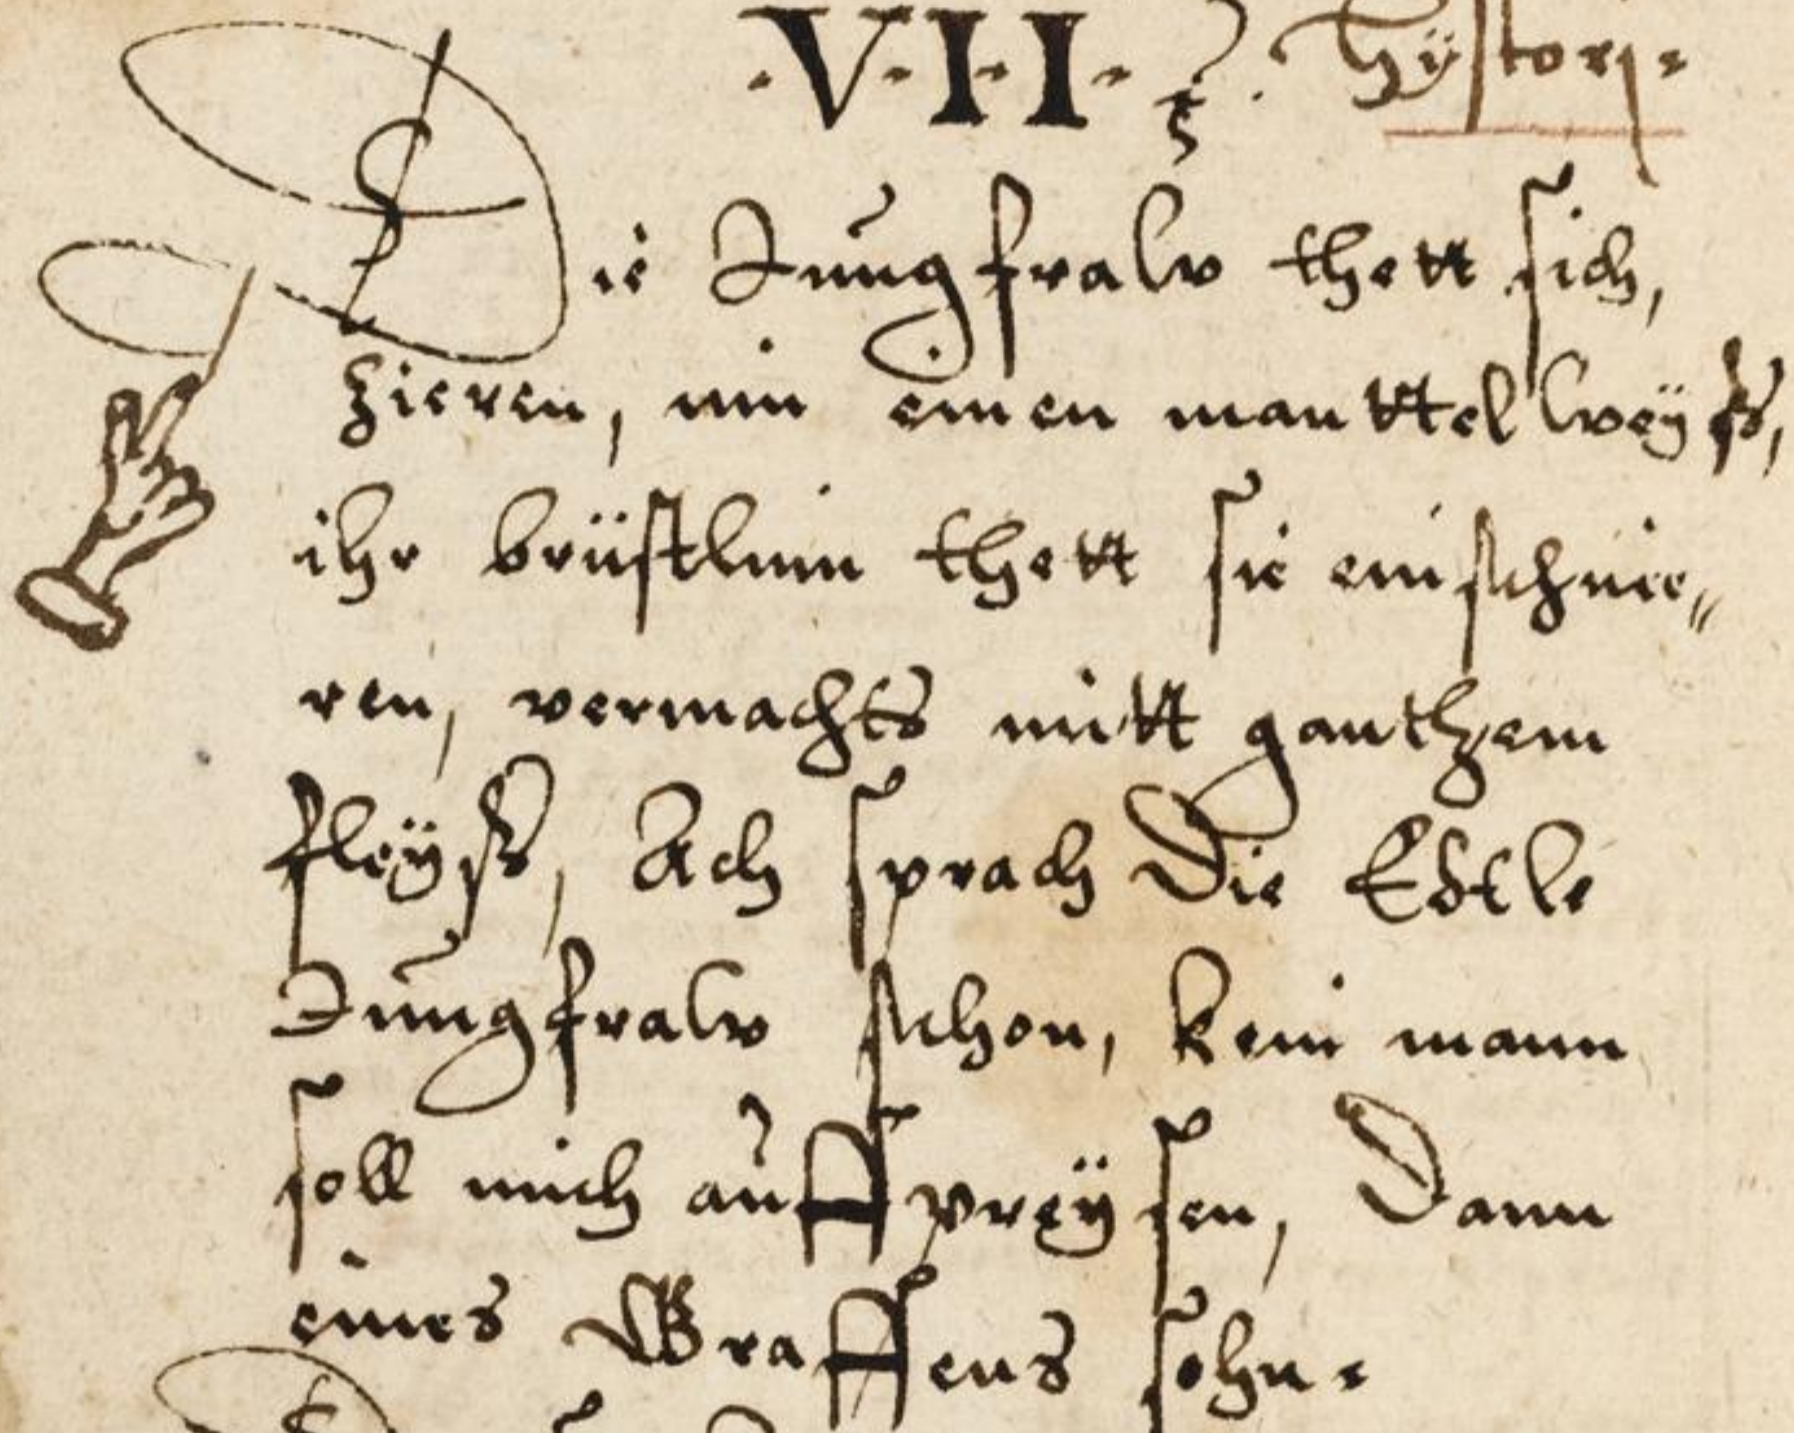 ·V·I·I· Hÿstorj.
Die Jungfraw thett sich,
zieren, inn einen manttel weÿß,
ihr brüstlinn thett sie einschnie„
ren, vermachts mitt ganthzem
fleÿß, Ach sprach Die Edtle
Jungfraw schon, kein mann
soll mich auffpreÿsen, Dann
eines Graffens sohn.